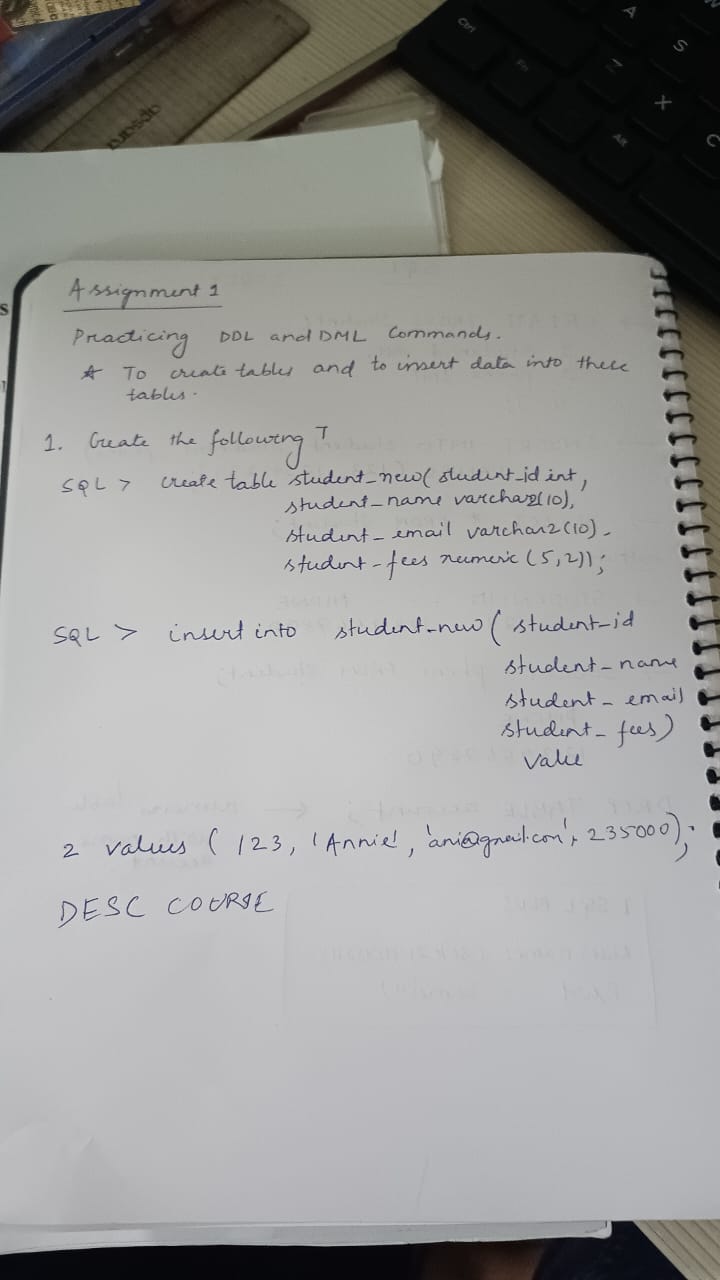 Ctrl
Fn
A
S
Z
X
C
Alt
apsara
Assignment 1
Practicing DDL and DML Commands.
* To create tables and to insert data into these
tables.
1. Create the following T
SQL > create table student_new( student_id int,
student_name varchar2(10),
student_email varchar2(10).
student_fees numeric (5,2));
SQL > insert into student_new ( student_id
student_name
student_email
student_fees)
value
2 values ( 123, 'Annie', 'ani@gmail.com', 235000);
DESC COURSE